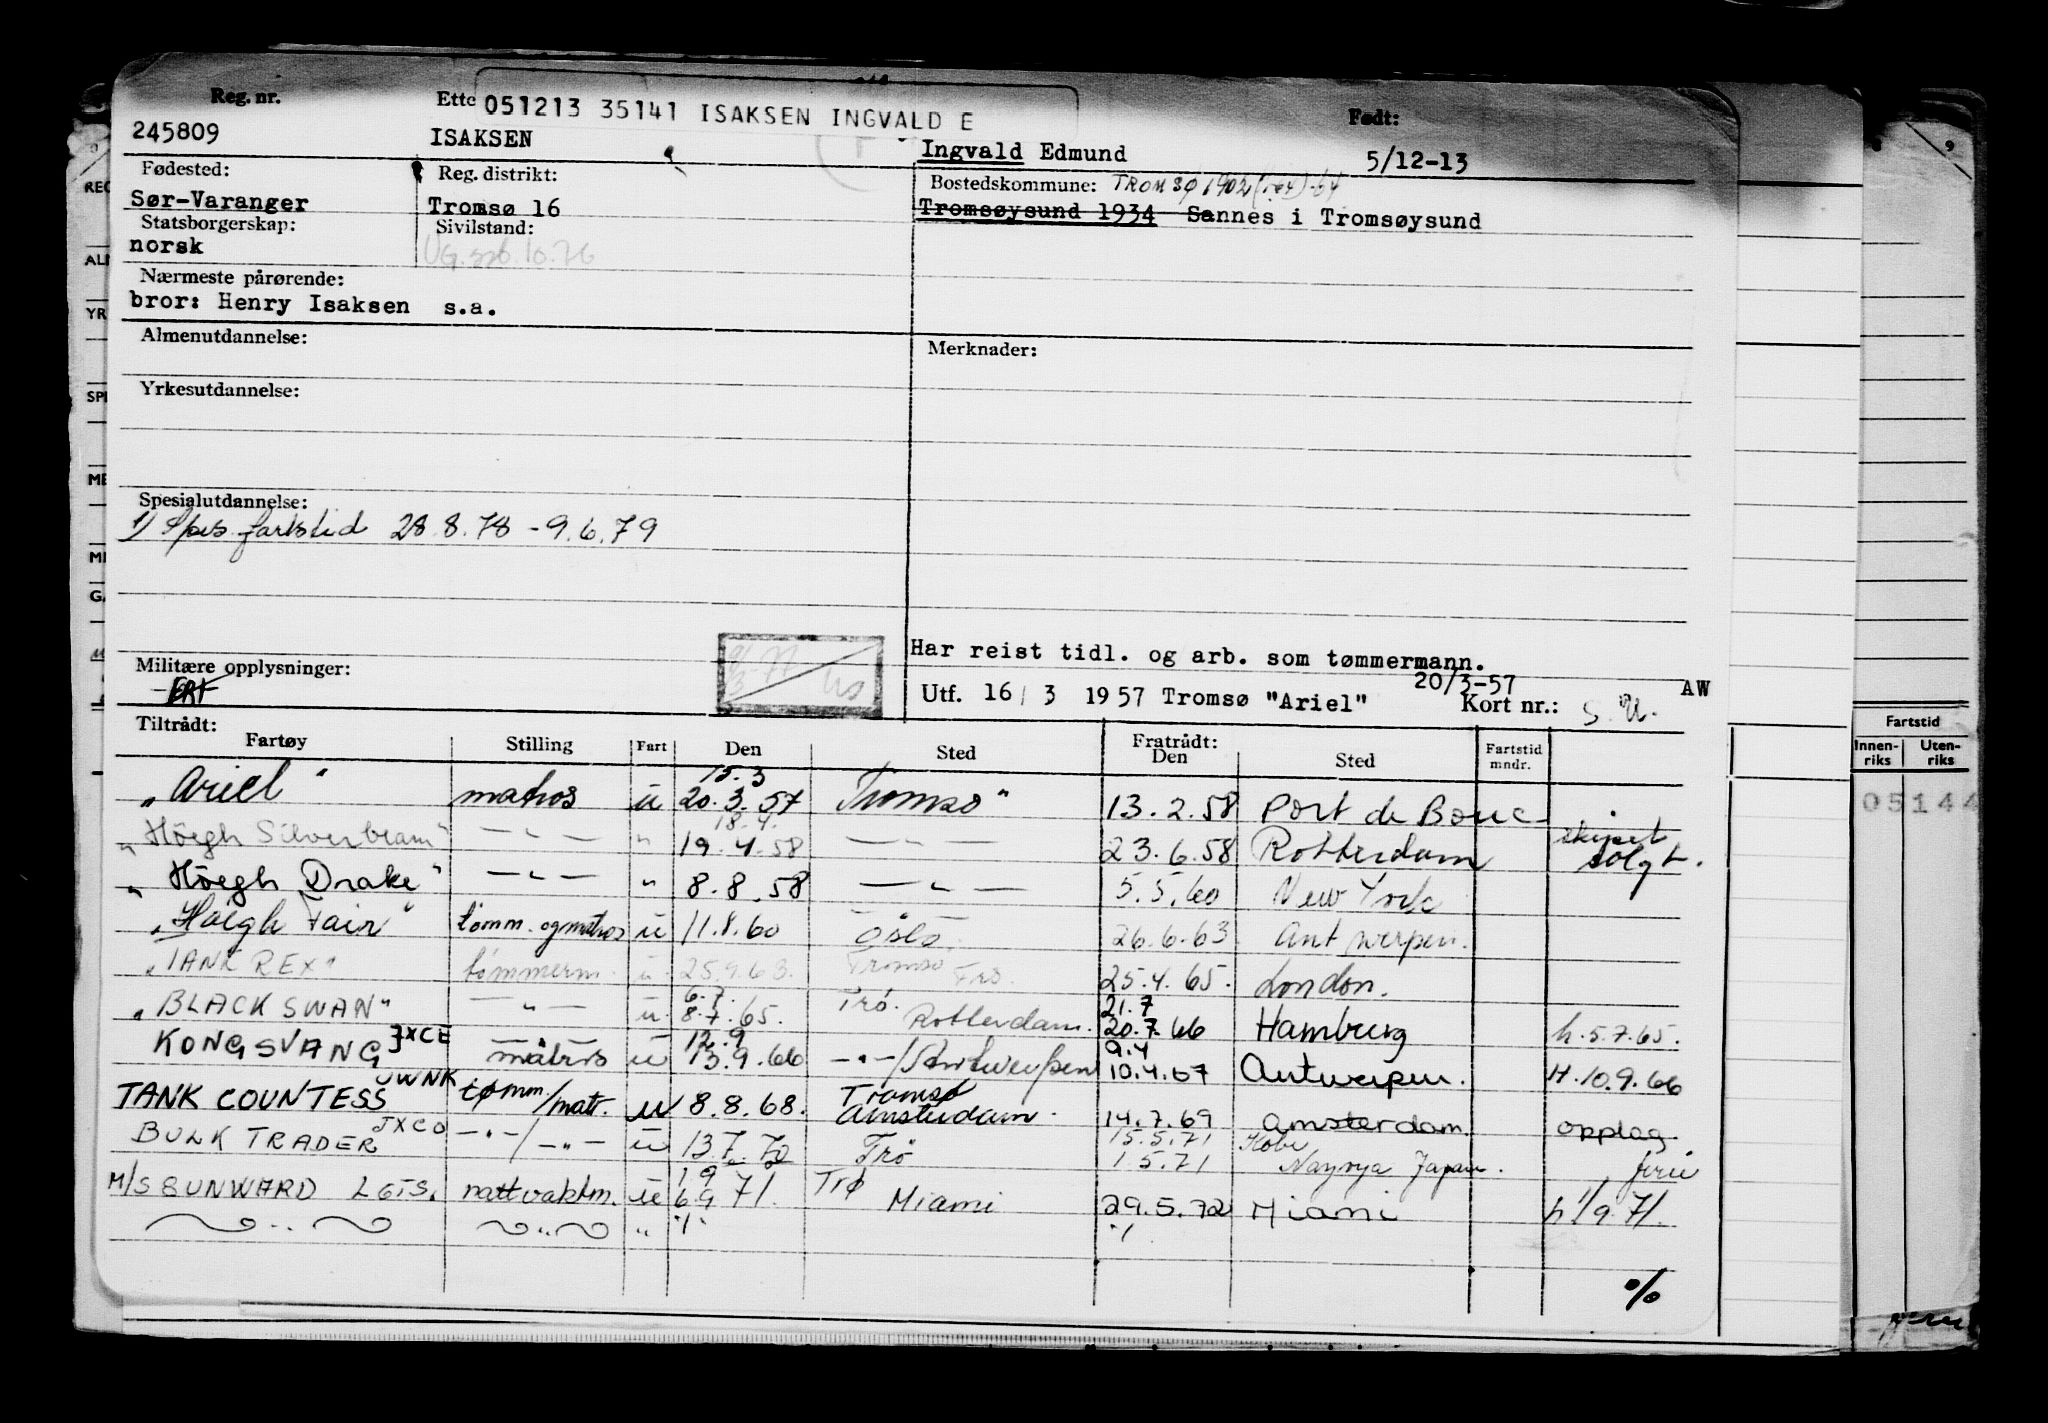 Reg. nr. Ette 051213 35141 ISAKSEN INGVALD E Født:
245809 ISAKSEN Ingvald Edmund 5/12-13
Fødested: Reg. distrikt: Bostedskommune: TROMSØ 1902
Sør-Varanger Tromsø 16 Tromsøysund 1934 Sannes i Tromsøysund
Statsborgerskap: Sivilstand:
norsk UG. 10.76
Nærmeste pårørende:
bror: Henry Isaksen s.a.
Almenutdannelse: Merknader:
Yrkesutdannelse:
Spesialutdannelse:
1) Spes. fartstid 28.8.78 - 9.6.79
Har reist tidl. og arb. som tømmermann.
Militære opplysninger:
20/3-57 AW
Utf. 16/3 1957 Tromsø "Ariel" Kort nr.: S.U.
Tiltrådt: Fratrådt:
Fartøy Stilling Fart Den Sted Den Sted Fartstid mndr.
15.3
"Ariel" matros u 20.3.57 Tromsø" 13.2.58 Port de Bouc
18.4.
"Höegh Silverbeam" — " — " 19.4.58 — " — 23.6.58 Rotterdam skipet solgt.
"Höegh Drake" — " — " 8.8.58 — " — 5.5.60 New York
"Höegh Fair" tömm. og matros u 11.8.60 Oslo 26.6.63 Antwerpen.
"TANK REX" tömmerm. u 25.9.63. Tromsø Trö. 25.4.65. London.
6.7. 21.7
"BLACK SWAN" — " — u. 8.7.65. Trö. Rotterdam. 20.7.66 Hamburg h.5.7.65.
12.9 9.4
KONGSVANG JXCE matros u 13.9.66 — " — / Antwerpen 10.4.67 Antwerpen. H.10.9.66
TANK COUNTESS JWNK tømm./matr. u 8.8.68. Tromsø Amsterdam. 14.7.69 Amsterdam. opplag.
15.5.71 Kobe
BULK TRADER JXCO — " — / — " — u 13.7.70 Trö 1.5.71 Japan. ferie
1.9
M/S SUNWARD LGTS. nattvaktm. u 6.9 71. Trø Miami 29.5.72 Miami h 1/9.71.
" " " ./. ./.
%
REG
ALM
YR
SPE
ME
MI
GA
9
Fartstid
Innen- Uten-
riks riks
05144